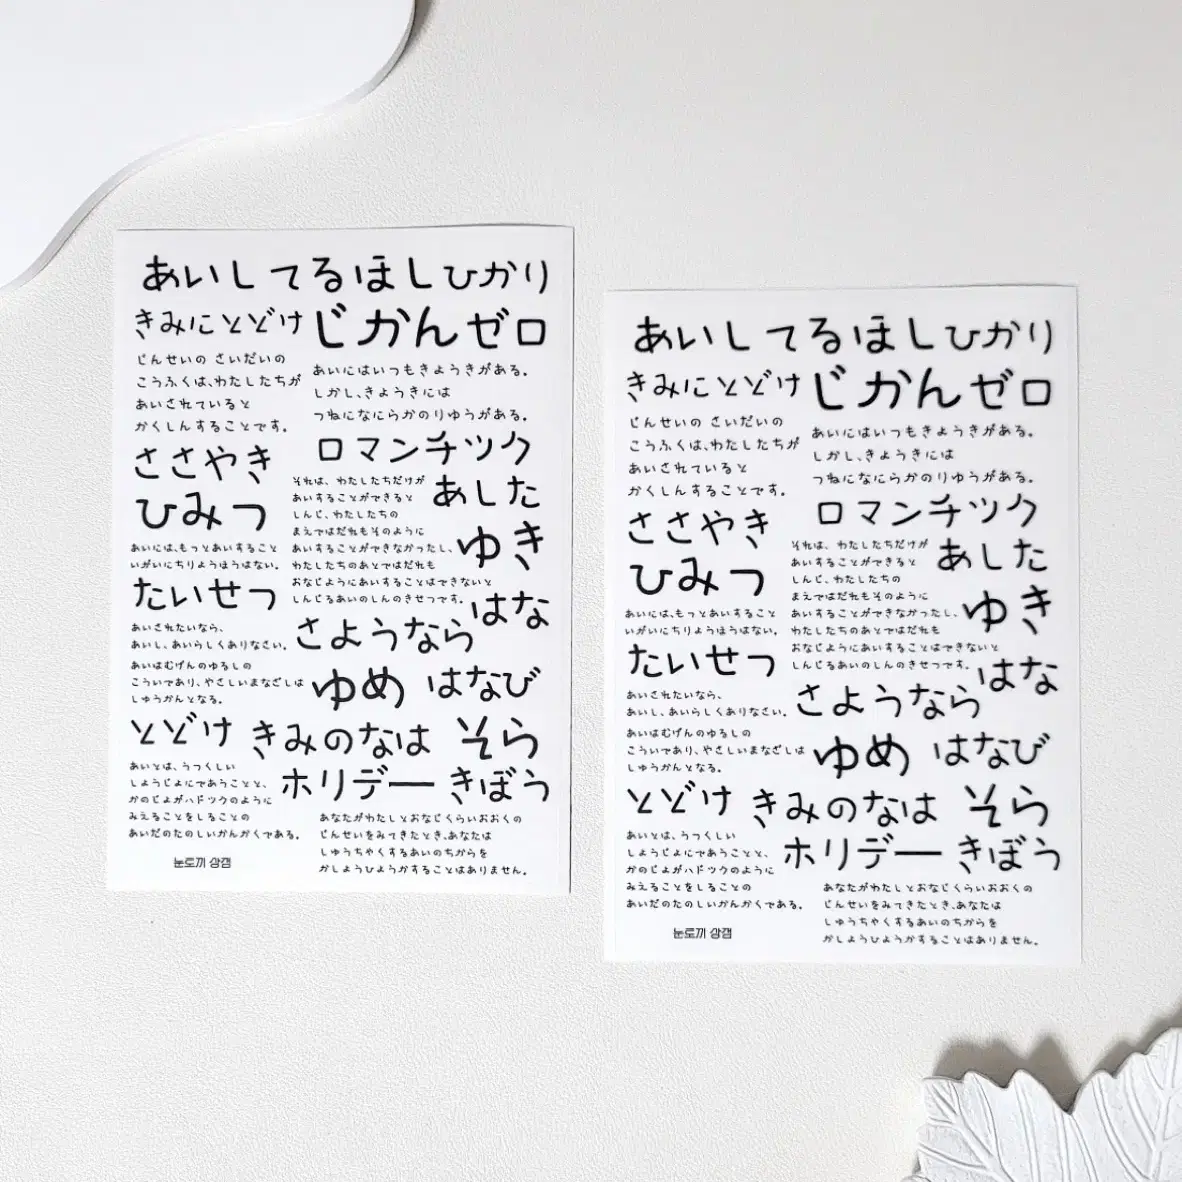 あいしてるほしひかり
きみにとどけ じかんゼロ
じんせいの さいだいの
こうふくは、わたしたちが
あいされていると
かくしんすることです。
あいにはいつもきょうきがある。
しかし、きょうきには
つねになにらかのりゆうがある。
ささやき
ロマンチック
ひみつ
それは、わたしたちだけが
あいすることができると
しんじ、わたしたちの
まえではだれもそのように
あいすることができなかったし、
わたしたちのあとではだれも
おなじようにあいすることはできないと
しんじるあいのしんのきせつです。
あした
ゆき
あいには、もっとあいすること
いがいにちりょうほうはない。
たいせつ
はな
あいされたいなら、
あいし、あいらしくありなさい。
さようなら
あいはむげんのゆるしの
こういであり、やさしいまなざしは
しゅうかんとなる。
ゆめ はなび
とどけ きみのなは そら
あいとは、うつくしい
しょうじょにであうことと、
かのじょがハドックのように
みえることをしることの
あいだのたのしいかんかくである。
ホリデー きぼう
あなたがわたしとおなじくらいおおくの
じんせいをみてきたとき、あなたは
しゅうちゃくするあいのちからを
かしょうひょうかすることはありません。
눈토끼 상점
あいしてるほしひかり
きみにとどけ じかんゼロ
じんせいの さいだいの
こうふくは、わたしたちが
あいされていると
かくしんすることです。
あいにはいつもきょうきがある。
しかし、きょうきには
つねになにらかのりゆうがある。
ささやき
ロマンチック
ひみつ
それは、わたしたちだけが
あいすることができると
しんじ、わたしたちの
まえではだれもそのように
あいすることができなかったし、
わたしたちのあとではだれも
おなじようにあいすることはできないと
しんじるあいのしんのきせつです。
あした
ゆき
あいには、もっとあいすること
いがいにちりょうほうはない。
たいせつ
はな
あいされたいなら、
あいし、あいらしくありなさい。
さようなら
あいはむげんのゆるしの
こういであり、やさしいまなざしは
しゅうかんとなる。
ゆめ はなび
とどけ きみのなは そら
あいとは、うつくしい
しょうじょにであうことと、
かのじょがハドックのように
みえることをしることの
あいだのたのしいかんかくである。
ホリデー きぼう
あなたがわたしとおなじくらいおおくの
じんせいをみてきたとき、あなたは
しゅうちゃくするあいのちからを
かしょうひょうかすることはありません。
눈토끼 상점